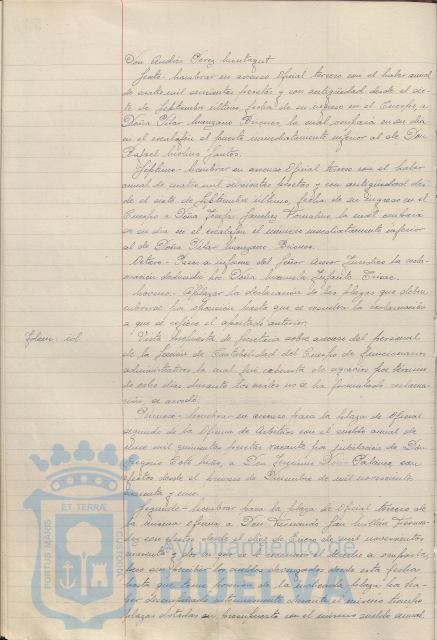 Don Andrés Perez Montagut
Sexto = Nombrar en ascenso Oficial tercero con el haber anual
de cuatro mil seiscientas pesetas y con antigüedad desde el sie-
te de Septiembre último, fecha de su ingreso en el Cuerpo, a
Doña Pilar Manzano Briones, la cual ocupará en su día
en el escalafón el puesto inmediatamente inferior al de Don
Rafael Molina Santos.
Septimo = Nombrar en ascenso Oficial tercero con el haber
anual de cuatro mil seiscientas pesetas y con antigüedad des-
de el siete de Septiembre último, fecha de su ingreso en el
Cuerpo a Doña Josefa Sanchez la cual ocupará
en su día en el escalafón el número inmediatamente inferior
al de Doña Pilar Manzano Briones.
Octavo = Pase a informe del Señor Asesor Jurídico la recla-
mación deducida por Doña Manuela Infante
Noveno = Aplazar la declaración de las plazas que deben
cubrirse por oposición hasta que se resuelva la reclamación
a que se refiere el apartado anterior.
Idem: id
Vista propuesta de Secretaria sobre ascenso del personal
de la Sección de Contabilidad del Cuerpo de funcionarios
administrativos la cual fue expuesta de agravios por término
de ocho días durante los cuales no se ha formulado reclama-
ción, se acordó.
Primero = Nombrar en ascenso para la plaza de Oficial
segundo de la Oficina de Arbitrios con el sueldo anual de
cinco mil quinientas pesetas vacante por jubilación de Don
Gregorio a Don Joaquin con
efectos desde el primero de Diciembre de mil novecientos
cuarenta y uno.
Segundo = Nombrar para la plaza de Oficial tercero de
la misma oficina a Don Fernando
con efectos desde el días de Enero de mil novecientos
cuarenta y derecho a ocuparla,
pero sin percibir los sueldos devengados desde esta fecha
hasta que tome posesión de la indicada plaza por ha-
ber desempeñado interinamente durante el mismo tiempo
plazas dotadas en presupuesto con el mismo sueldo anual.
PORTUS MARIS
ET TERRÆ
CUSTODIA
Ayuntamiento de
HUELVA